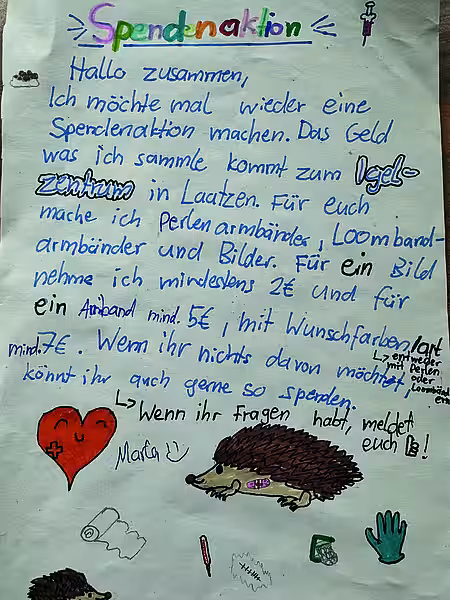 Spendenaktion
Hallo zusammen,
Ich möchte mal wieder eine
Spendenaktion machen. Das Geld
was ich sammle kommt zum Igel-
zentrum in Laatzen. Für euch
mache ich Perlenarmbänder, Loomband-
armbänder und Bilder. Für ein Bild
nehme ich mindestens 2€ und für
ein Armband mind. 5€, mit Wunschfarben/art
mind. 7€. Wenn ihr nichts davon möchtet,
↳ entweder
mit Perlen
oder
Loombändern
könnt ihr auch gerne so spenden.
↳ Wenn ihr Fragen habt, meldet
euch !
Marla